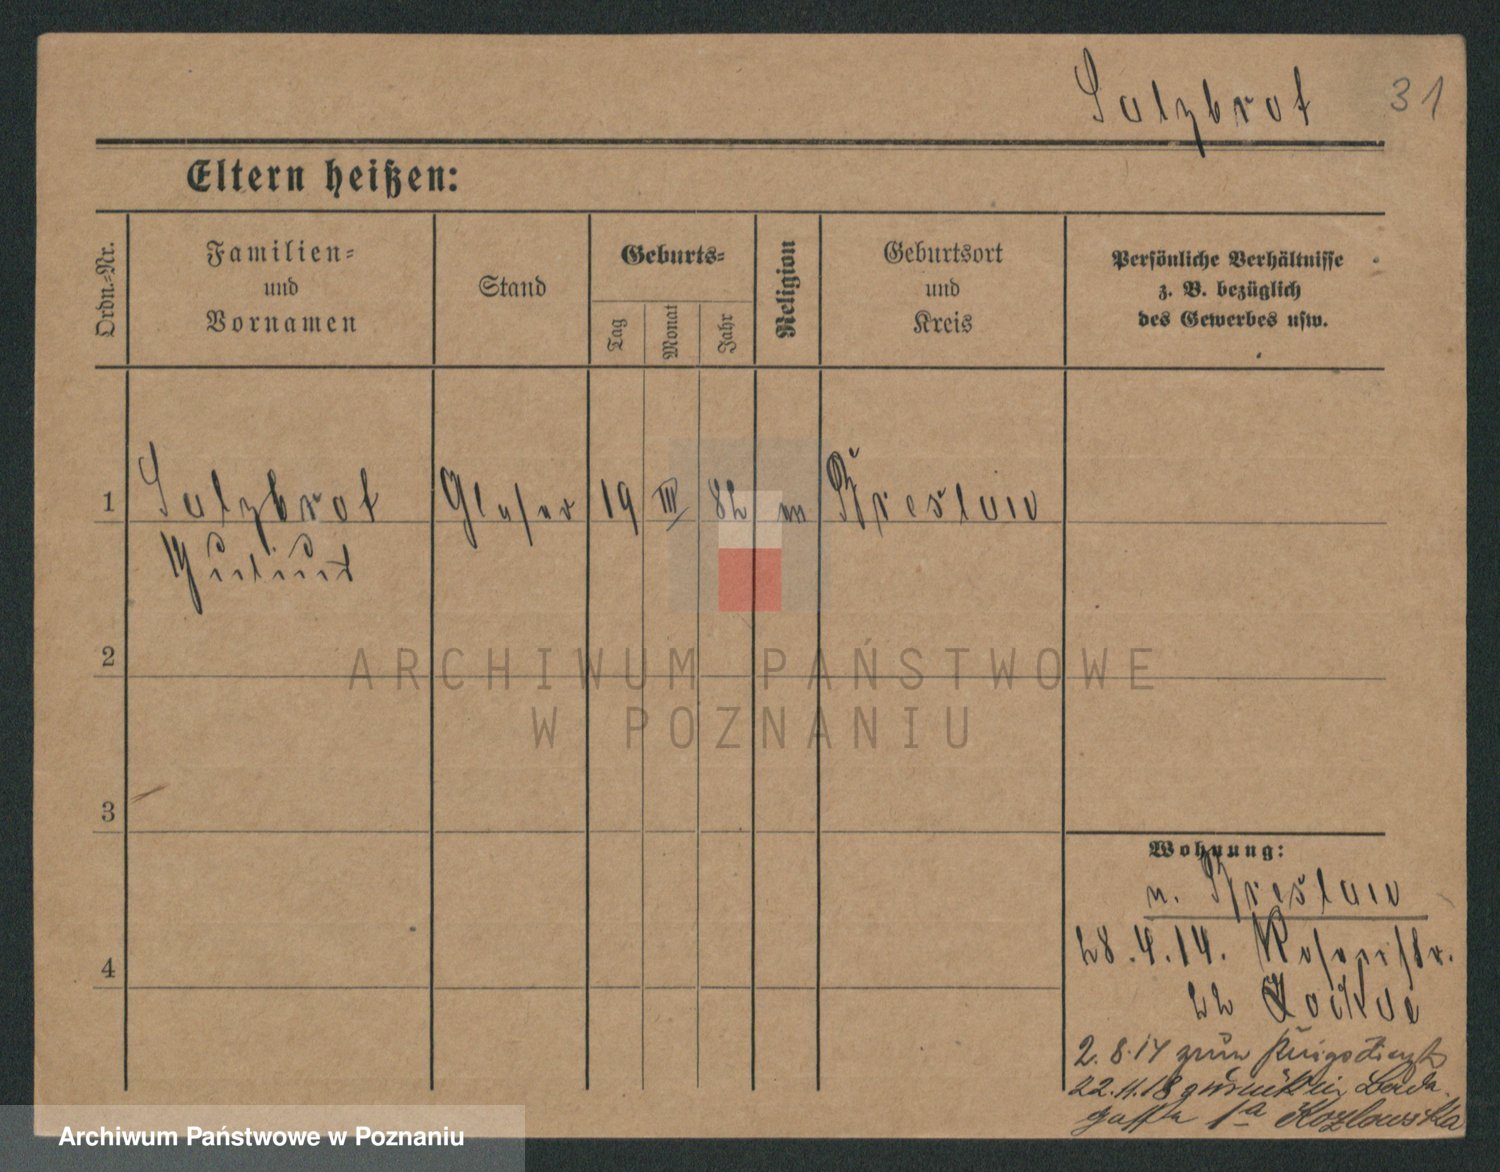 Salzbrot 31
Eltern heißen:
Ordn.=Nr.
Familien=
und
Vornamen
Stand
Geburts=
Tag
Monat
Jahr
Religion
Geburtsort
und
Kreis
Persönliche Verhältnisse
z. B. bezüglich
des Gewerbes usw.
1 Salzbrot Glaser 19 III 82 m Breslau
2
3
4
Wohnung:
n. Breslau
28.4.14.
22
2.8.14 zum Kriegsdienst
22.11.18 zurück in Bada
gasse 1a Kozlowska
ARCHIWUM PAŃSTWOWE
W POZNANIU
Archiwum Państwowe w Poznaniu